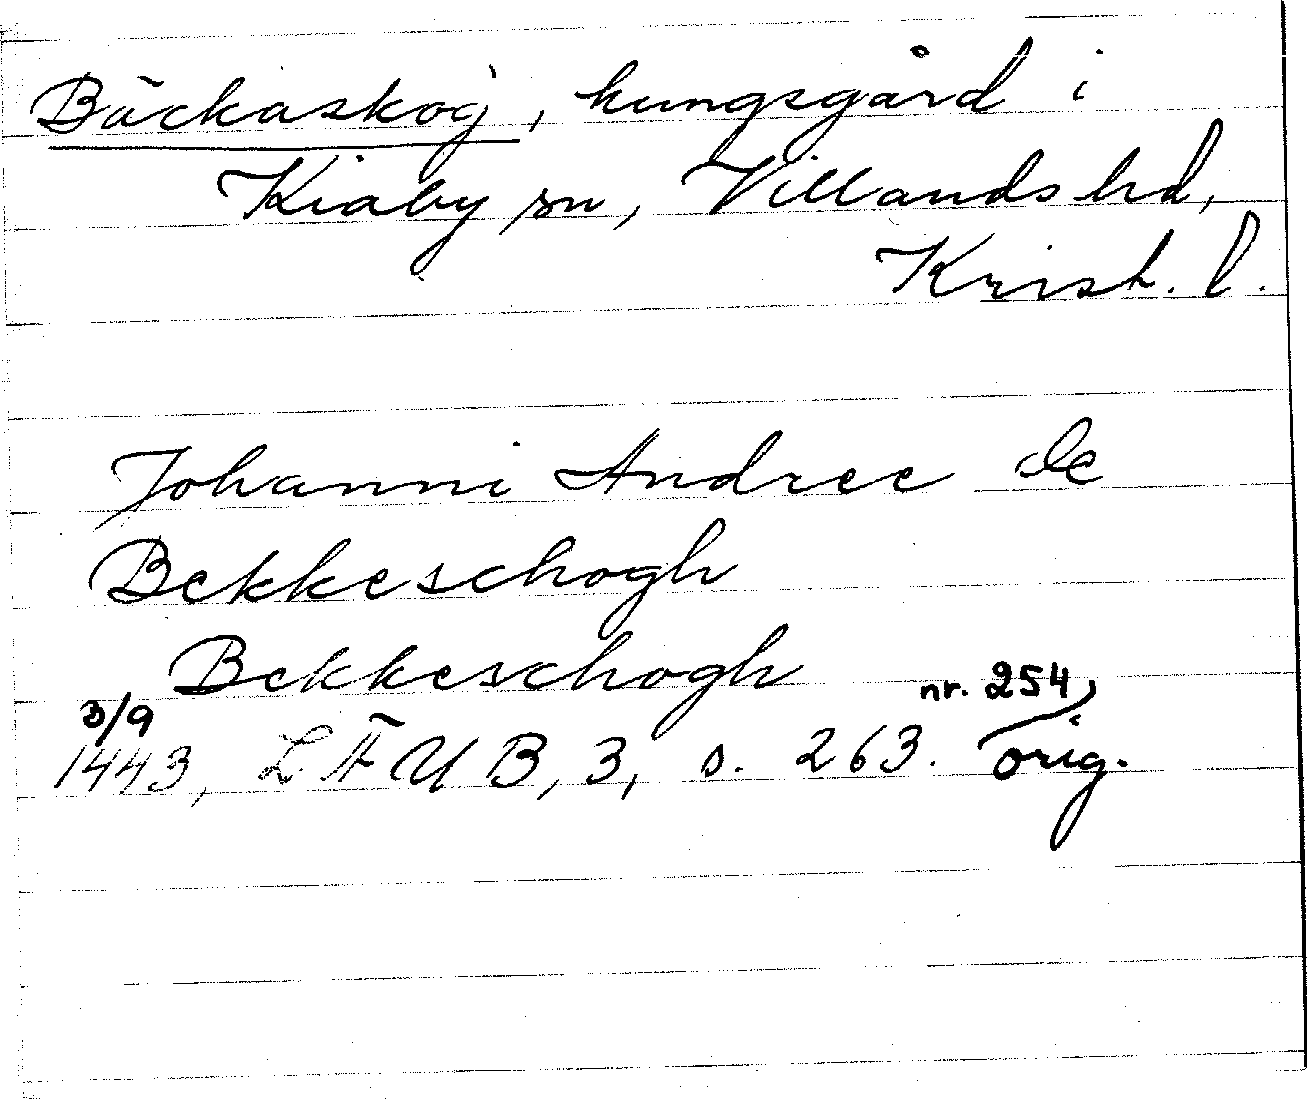 Bäckaskog, kungsgård i
Kiaby sn, Villands hd,
Krist. l.
Johanni Andree de
Bekkeschogh
Bekkeschogh
3/9 nr. 254,
1443, LÄUB, 3, s. 263. orig.